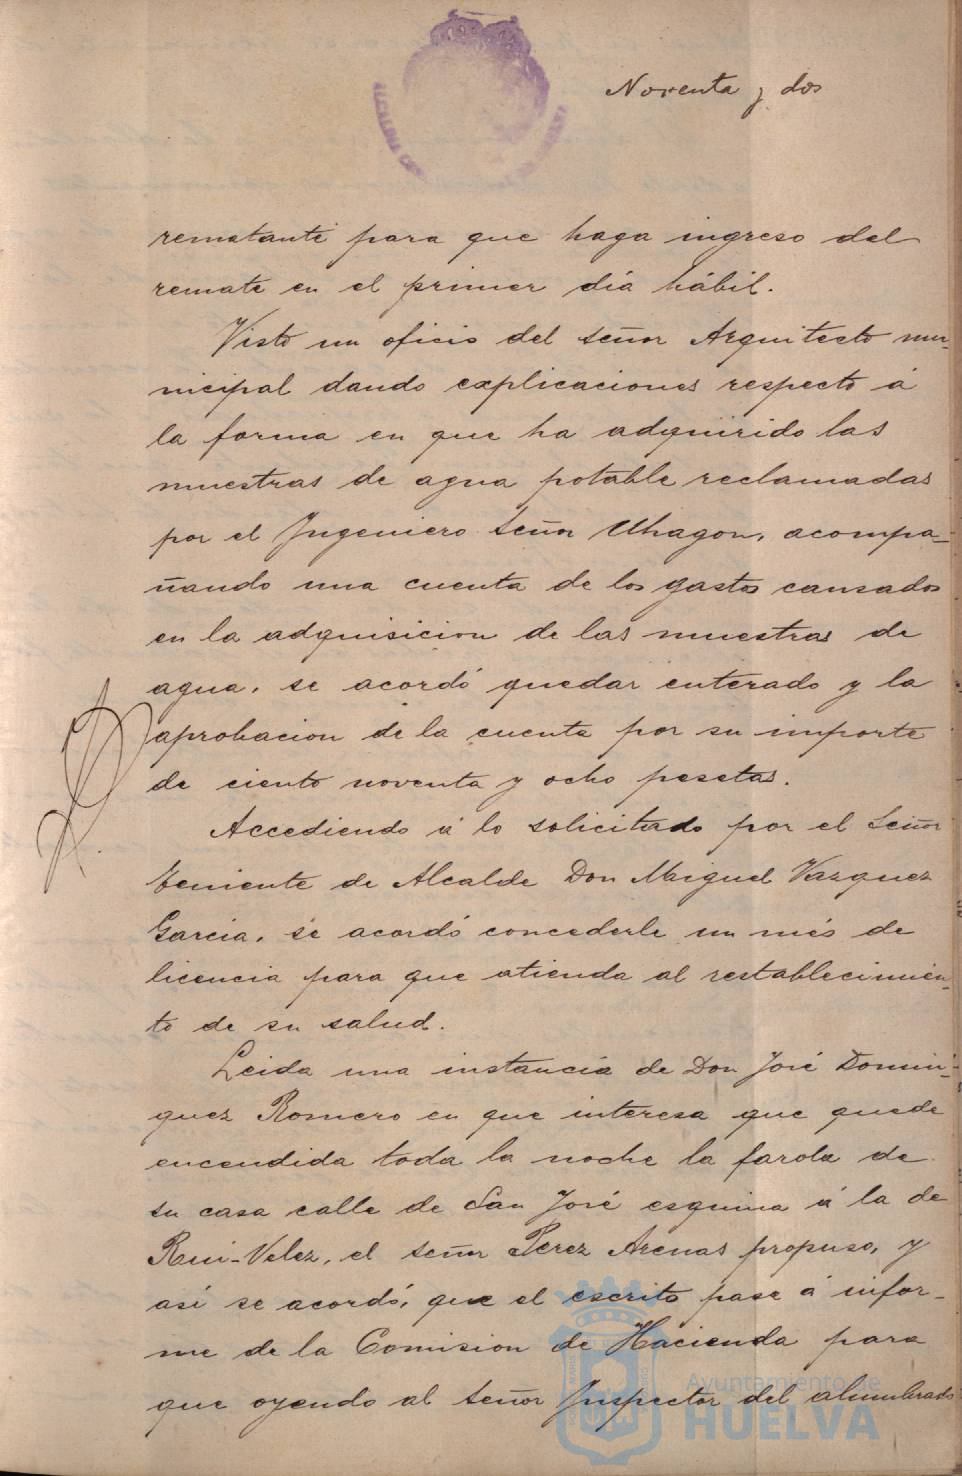 Noventa y dos
rematante para que haga ingreso del
remate en el primer día hábil.
Visto un oficio del señor Arquitecto mu-
nicipal dando explicaciones respecto á
la forma en que ha adquirido las
muestras de agua potable reclamadas
por el Ingeniero Señor Uhagon, acompa-
ñando una cuenta de los gastos causados
en la adquisicion de las muestras de
agua, se acordó quedar enterado y la
aprobacion de la cuenta por su importe
de ciento noventa y ocho pesetas.
Accediendo á lo solicitado por el Señor
Teniente de Alcalde Don Miguel Vazquez
Garcia, se acordó concederle un més de
licencia para que atienda al restablecimien-
to de su salud.
Leida una instancia de Don José Domin-
guez Romero en que interesa que quede
encendida toda la noche la farola de
su casa calle de San José esquina á la de
Rui-Velez, el señor Perez Arenas propuso, y
así se acordó, que el escrito pase á infor-
me de la Comision de Hacienda para
que oyendo al Señor Inspector del alumbrado
Ayuntamiento de
HUELVA